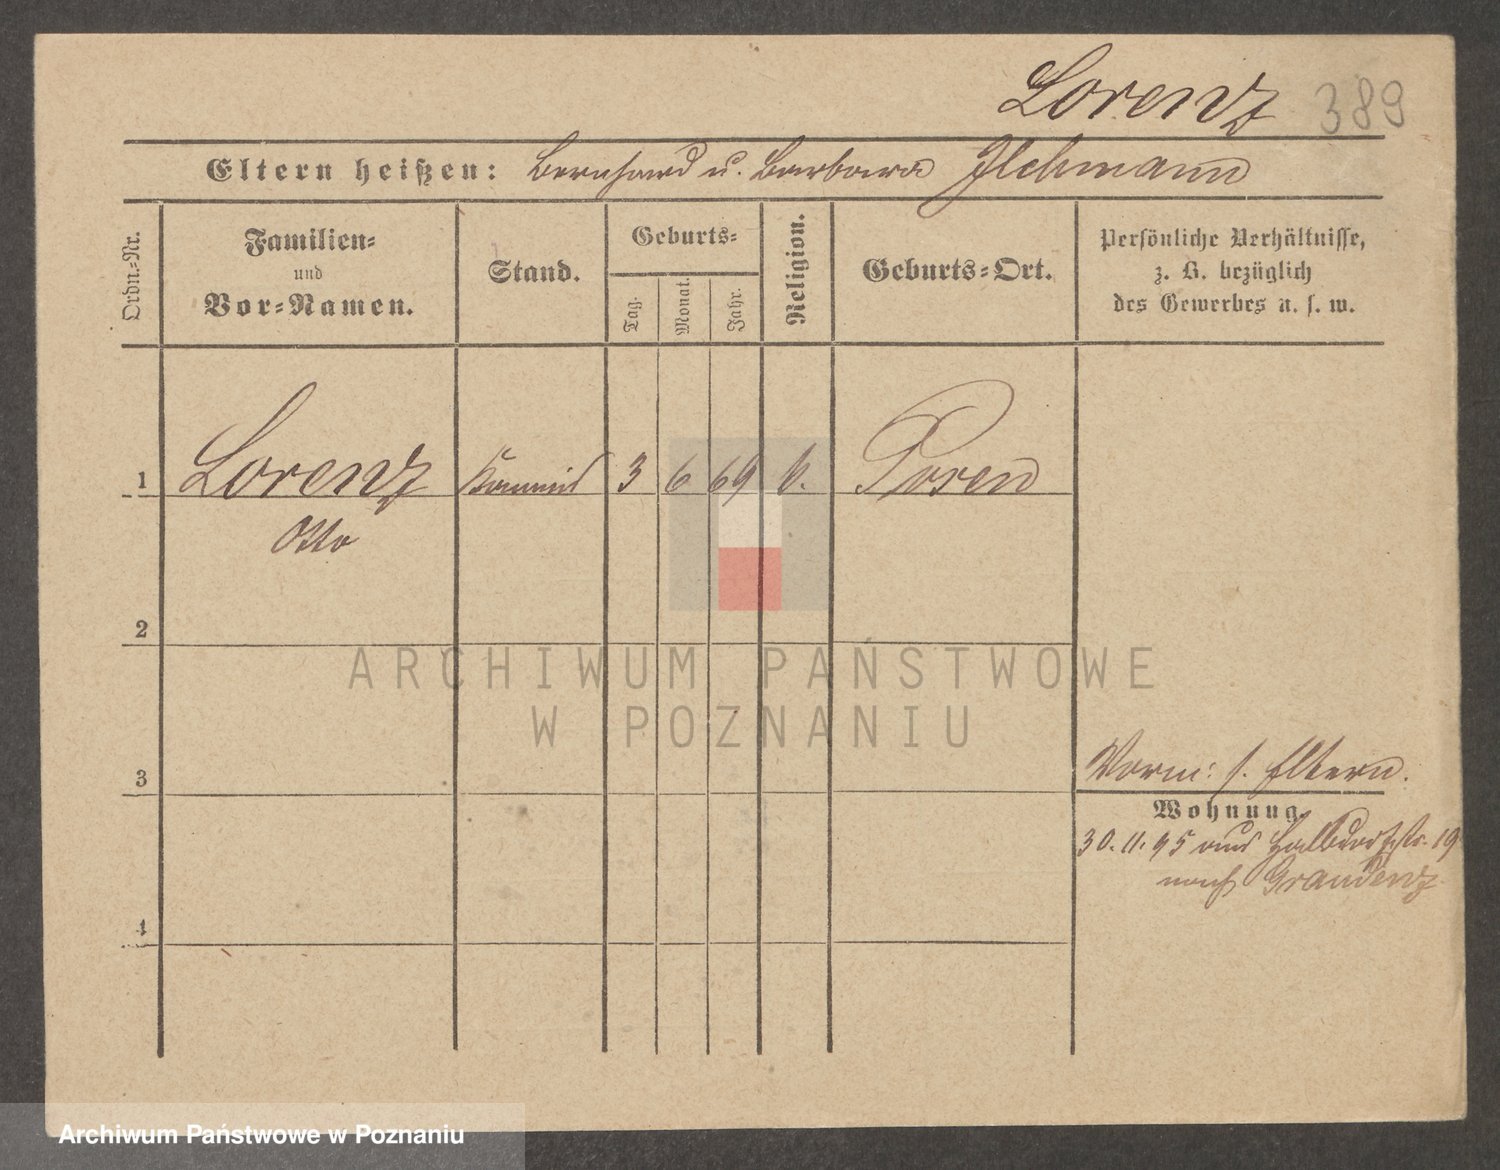 Lorenz 389
Eltern heißen: Bernhard u. Barbara Ilchmann
Ordn.=Nr.
Familien=
und
Vor=Namen.
Stand.
Geburts=
Tag.
Monat.
Jahr.
Religion.
Geburts=Ort.
Persönliche Verhältnisse,
z. B. bezüglich
des Gewerbes u. s. w.
1 Lorenz Kommis 3 6 69 k. Posen
Otto
2
3
4
Vorm: s. Eltern.
Wohnung
30. 11. 95 aus Halbdorfstr. 19
nach Graudenz
ARCHIWUM PAŃSTWOWE
W POZNANIU
Archiwum Państwowe w Poznaniu